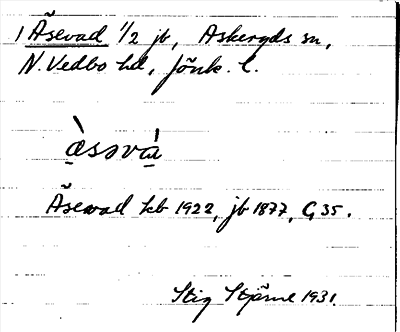 1 Åsevad 1/2 jb, Askeryds sn,
N. Vedbo hd, Jönk. l.
a̱̍səva̱̍
Åsewad kb 1922, jb 1877, G 35.
Stig Stjärne 1931.